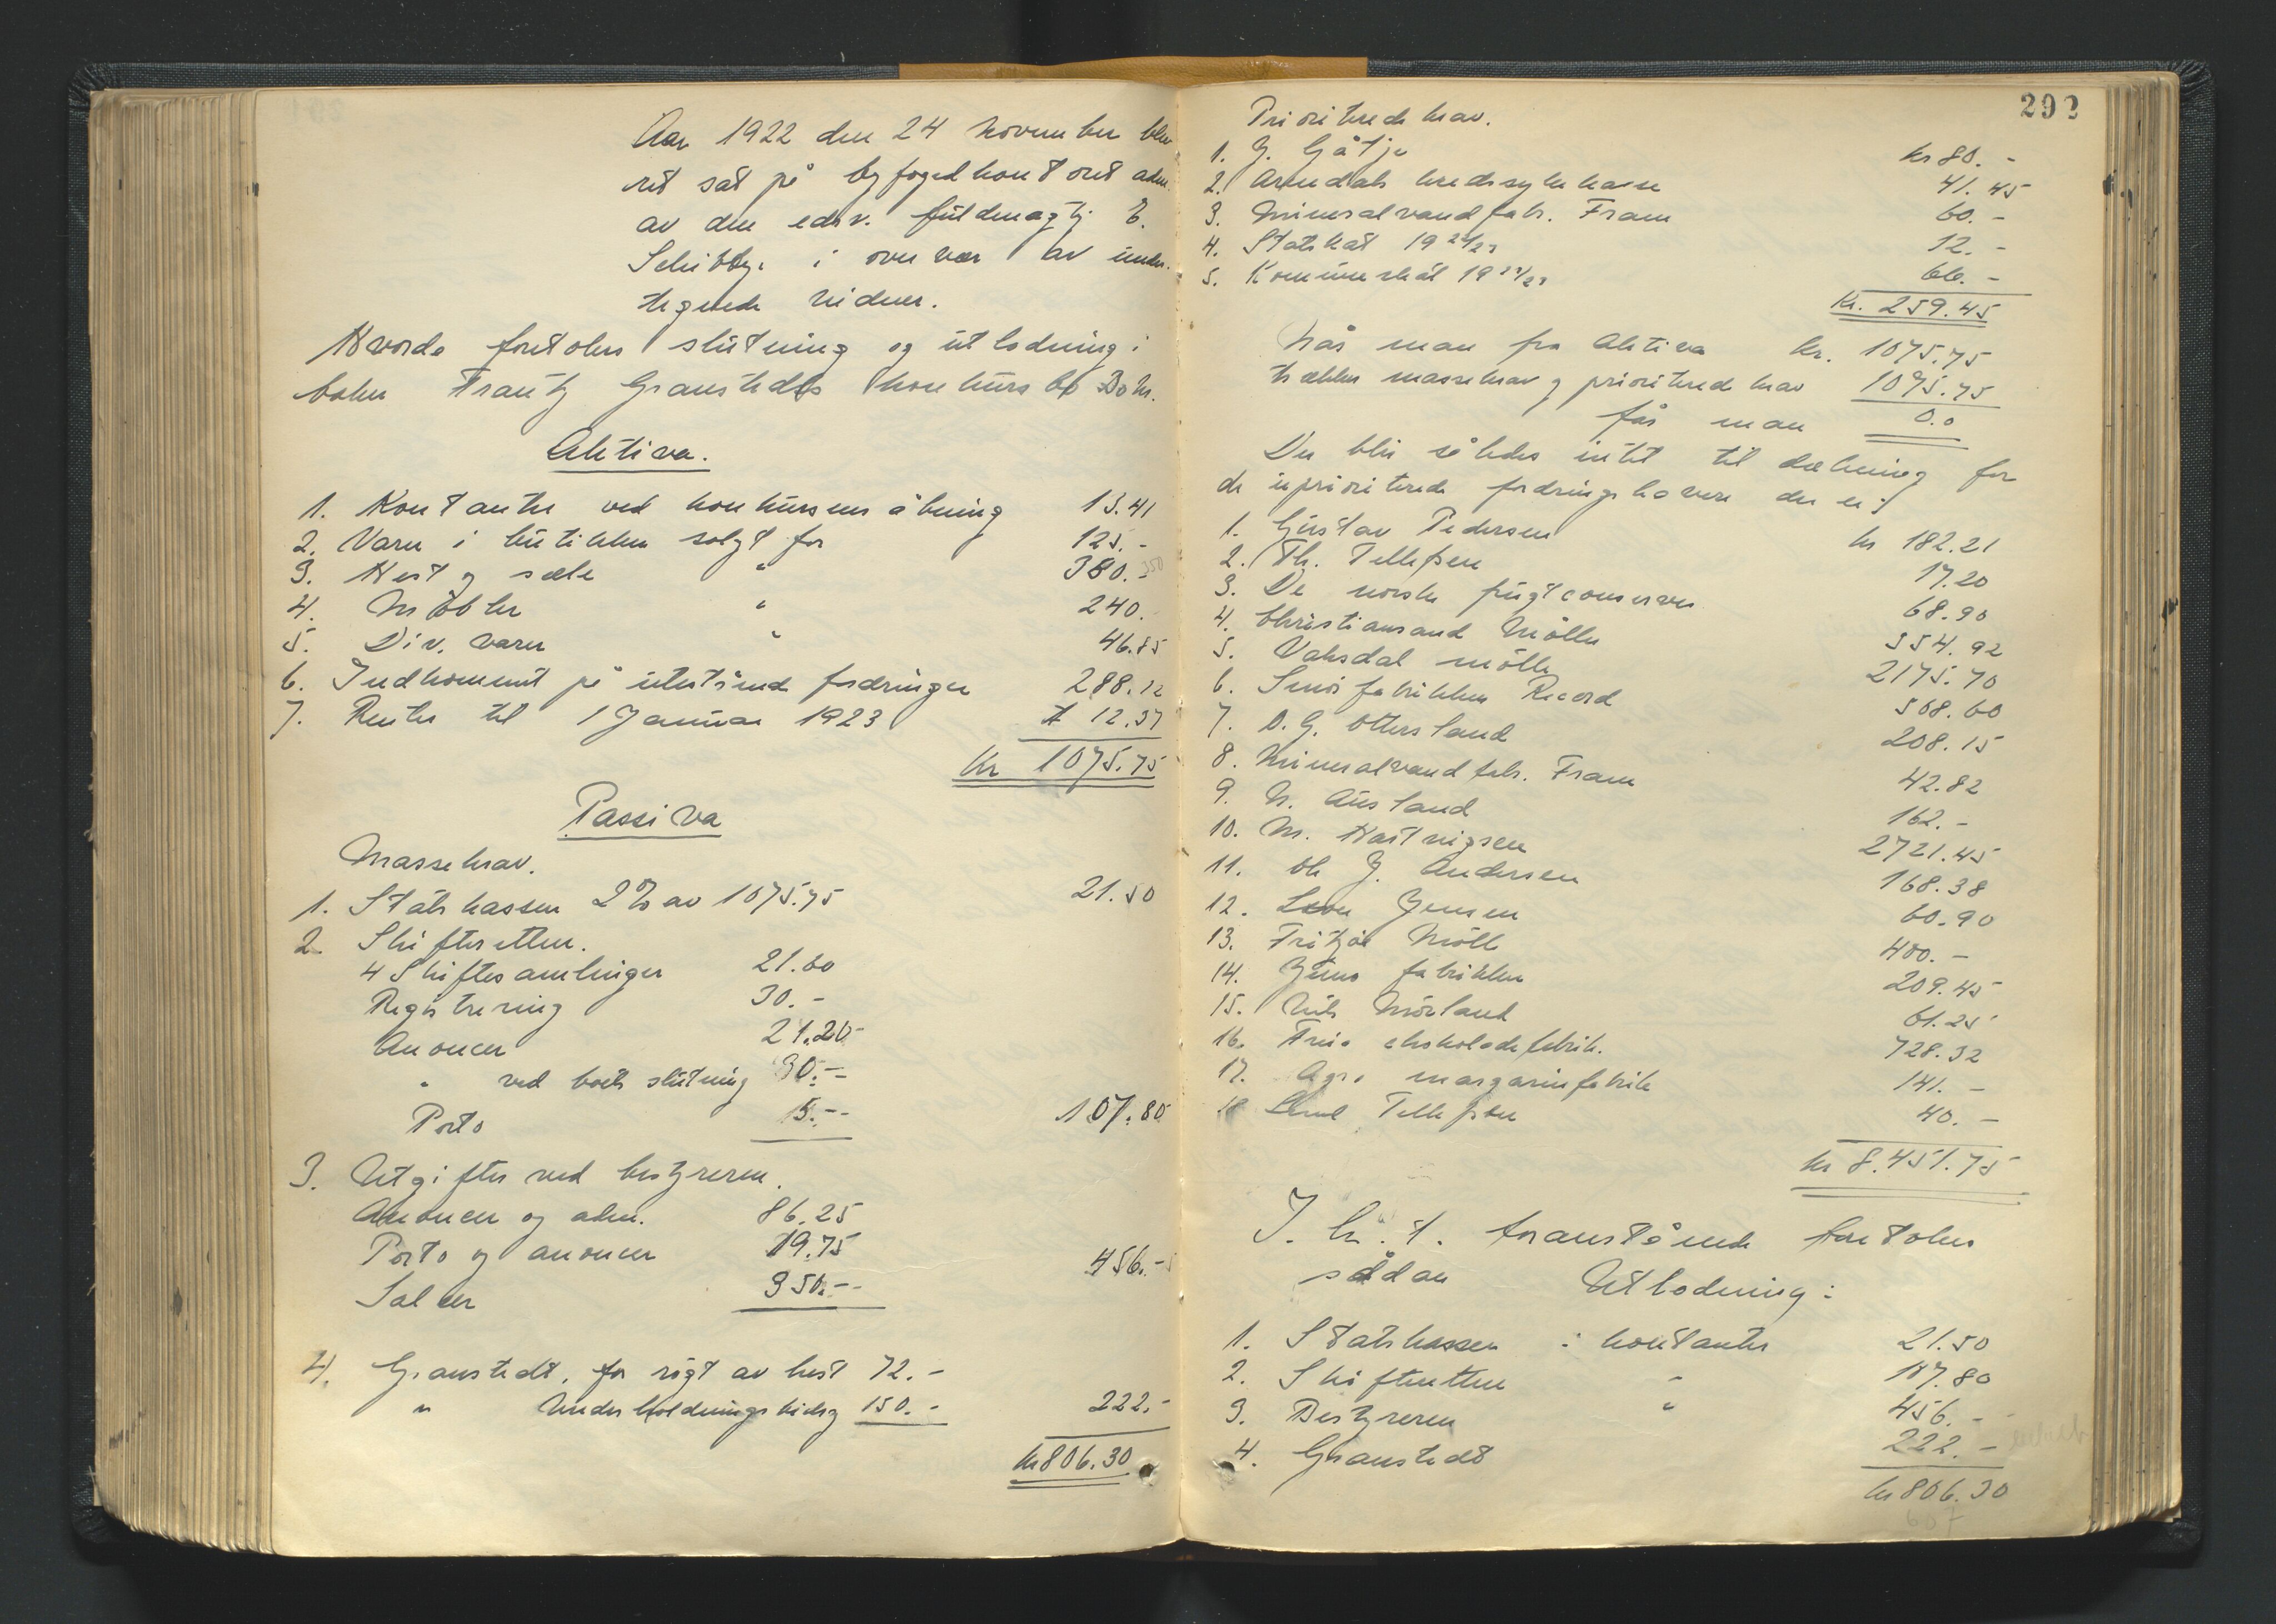 Aar 1922 den 24 november blev
ret sat på byfogedkontoret adm.
av den edsv. fuldmægtig E.
Schibbye i overvær av under-
tegnede vidner.
Hvorda foretokes slutning og utlodning i
baker Frantz Granstedts konkursbo
Aktiva.
1. Kontanter ved konkursens åbning 13.41
2. Varer i butikken solgt for 125.-
3. Hest og sæle " 380.-
4. Möbler " 240.
5. Div. varer " 46.85
6. Indkommet på utestående fordringer 288.12
7. Renter til 1 Januar 1923 12.37
Kr 1075.75
Passiva
Massekrav.
1. Statskassen 2% av 1075.75 21.50
2. Skifteretten.
4 Skiftesamlinger 21.60
Registrering 30.-
Anoncer 21.20
" ved boets slutning
Porto 107.80
3. Utgifter ved bestyreren.
Anoncer og adm. 86.25
Porto og anoncer 19.75 456.-
Salær 350.--
4. Granstedt, for røgt av hest 72.-
" Underholdningsbidrag 150.- 222.-
kr 806.30
292
Prioriterede krav.
1. J. Gåtje kr 80.-
2. Arendals kredssykekasse 41.45
3. Mineralvandfabr. Fram 60.-
4. Statskat 1922/23 12.-
5. Kommuneskat 1922/23 66.-
Kr. 259.45
Når man fra Aktiva kr. 1075.75
trækker massekrav og prioriterede krav 1075.75
får man 0.0
Der blir således intet til dækning for
de uprioriterede fordringshavere der er:
1. Gustav Pedersen kr 182.21
2. Th. Tellefsen 17.20
3. De norske frugtconserves 68.90
4. Christiansand Mölle 554.92
5. Vaksdal mölle 2175.70
6. Smörfabrikken Record 508.60
7. O. G. Ottersland 208.15
8. Mineralvandfabr. Fram 42.82
9. N. Ausland 162.-
10. M. Hartvigsen 2721.45
11. Chr J. Andersen 168.38
12. Leon Jensen 60.90
13. Fritzöe Mölle 400.-
14. Juno fabrikken 209.45
15. Nils Mörland 61.25
16. Freia chokoladefabrik. 728.32
17. Agra margarinfabrik 141.-
18 Tellefsen 40.-
kr 8.451.75
I h. t. foranstående foretokes
sådan Utlodning:
1. Statskassen i kontanter 21.50
2. Skifteretten " 107.80
3. Bestyreren " 456.-
4. Granstedt 222.-
kr 806.30